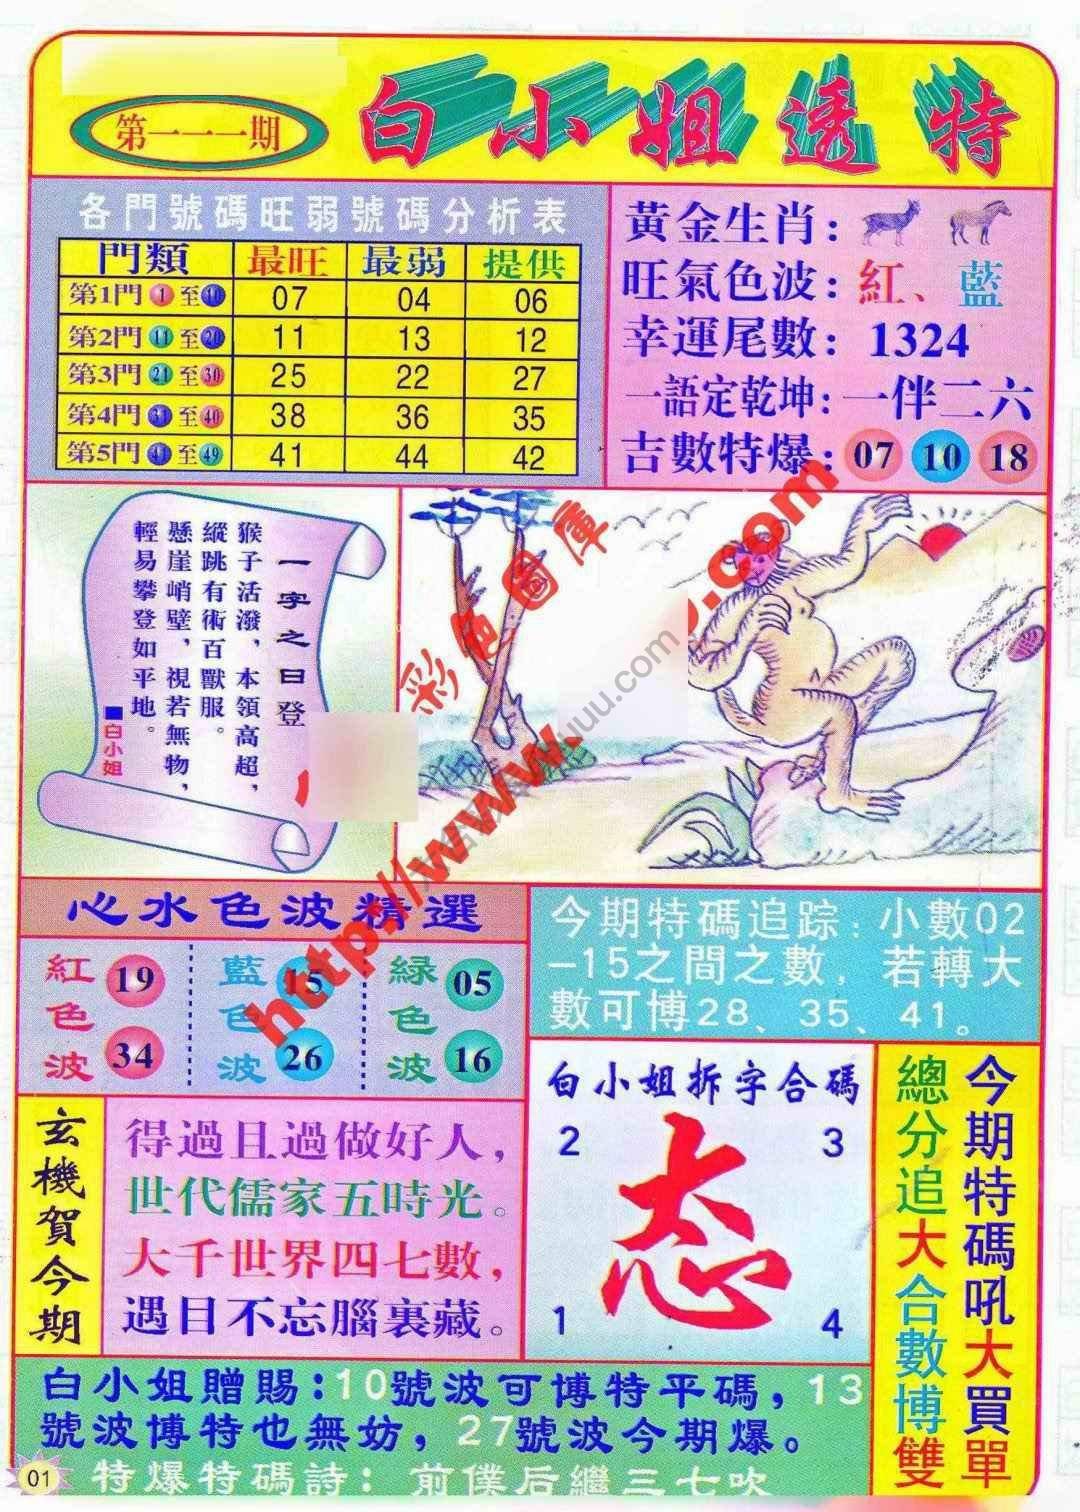 第一一一期
白小姐透特
各門號碼旺弱號碼分析表
門類 最旺 最弱 提供
第1門 1 至 10 07 04 06
第2門 11 至 20 11 13 12
第3門 21 至 30 25 22 27
第4門 31 至 40 38 36 35
第5門 41 至 49 41 44 42
黃金生肖:
旺氣色波: 紅、藍
幸運尾數: 1324
一語定乾坤: 一伴二六
吉數特爆: 07 10 18
一字之曰登
猴子活潑，本領高超，
縱跳有術百獸服。
懸崖峭壁，視若無物，
輕易攀登如平地。
■白小姐
彩色圖庫
http://www.
.com
uuu.com
心水色波精選
紅色波 19 34
藍色波 15 26
緑色波 05 16
今期特碼追踪:小數02
-15之間之數，若轉大
數可博28、35、41。
玄機賀今期
得過且過做好人，
世代儒家五時光。
大千世界四七數，
遇目不忘腦裏藏。
白小姐拆字合碼
2 3
态
1 4
今期特碼吼大買單
總分追大合數博雙
白小姐贈賜:10號波可博特平碼，13
號波博特也無妨，27號波今期爆。
特爆特碼詩: 前僕后繼三七吹
01